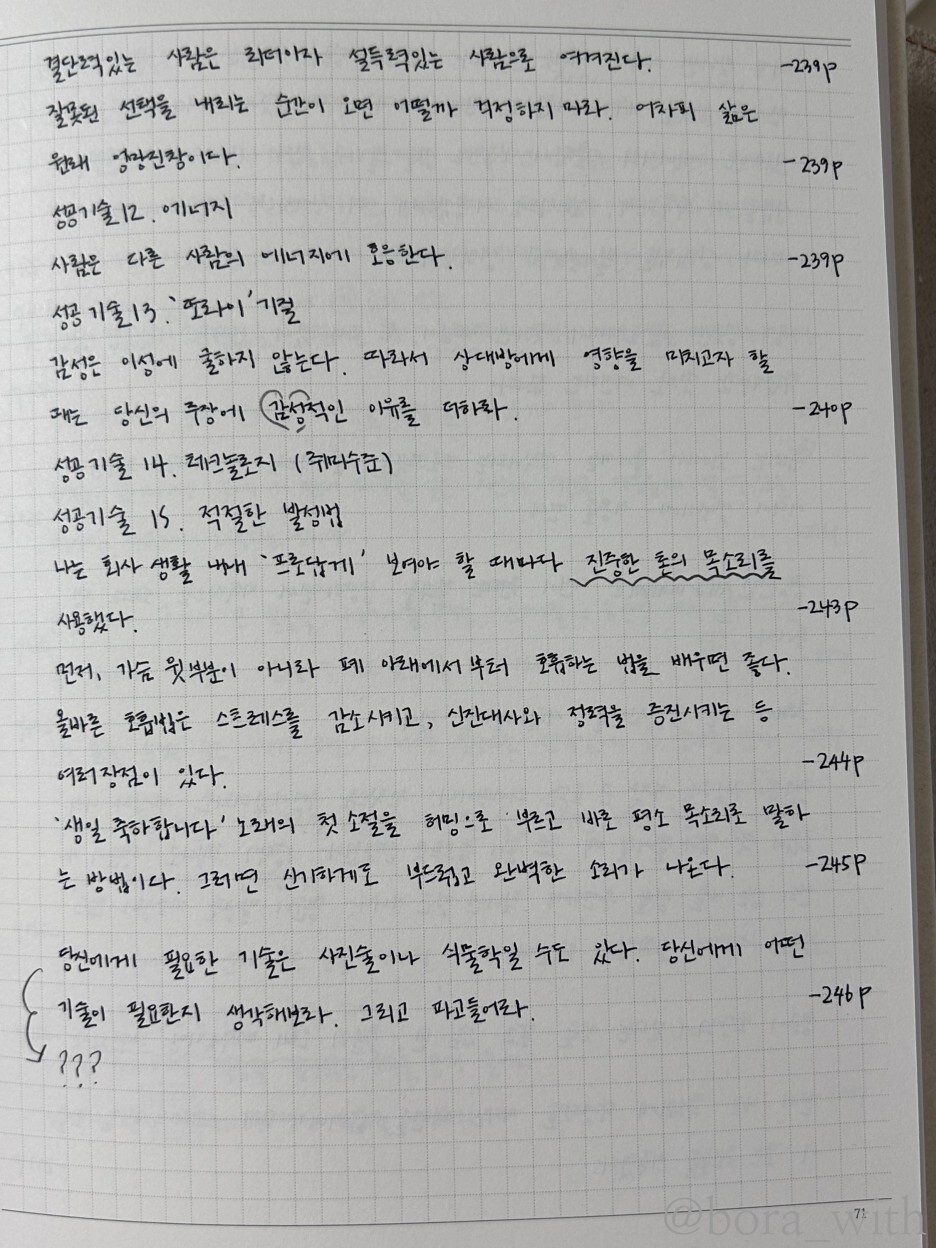 결단력있는 사람은 리더이자 설득력있는 사람으로 여겨진다. -239p
잘못된 선택을 내리는 순간이 오면 어떨까 걱정하지 마라. 어차피 삶은
원래 엉망진창이다. -239p
성공기술12. 에너지
사람은 다른 사람의 에너지에 호응한다. -239p
성공기술13. '또라이' 기질
감성은 이성에 굴하지 않는다. 따라서 상대방에게 영향을 미치고자 할
때는 당신의 주장에 감성적인 이유를 더하라. -240p
성공기술 14. 테크놀로지 (취미수준)
성공기술 15. 적절한 발성법
나는 회사 생활 내내 '프로답게' 보여야 할 때마다 진중한 톤의 목소리를
사용했다. -243p
먼저, 가슴 윗부분이 아니라 폐 아래에서부터 호흡하는 법을 배우면 좋다.
올바른 호흡법은 스트레스를 감소시키고, 신진대사와 정력을 증진시키는 등
여러장점이 있다. -244p
'생일 축하합니다' 노래의 첫 소절을 허밍으로 부르고 바로 평소 목소리로 말하
는 방법이다. 그러면 신기하게도 부드럽고 완벽한 소리가 나온다. -245p
당신에게 필요한 기술은 사진술이나 식물학일 수도 있다. 당신에게 어떤
기술이 필요한지 생각해보라. 그리고 파고들어라. -246p
???
71
@bora_with